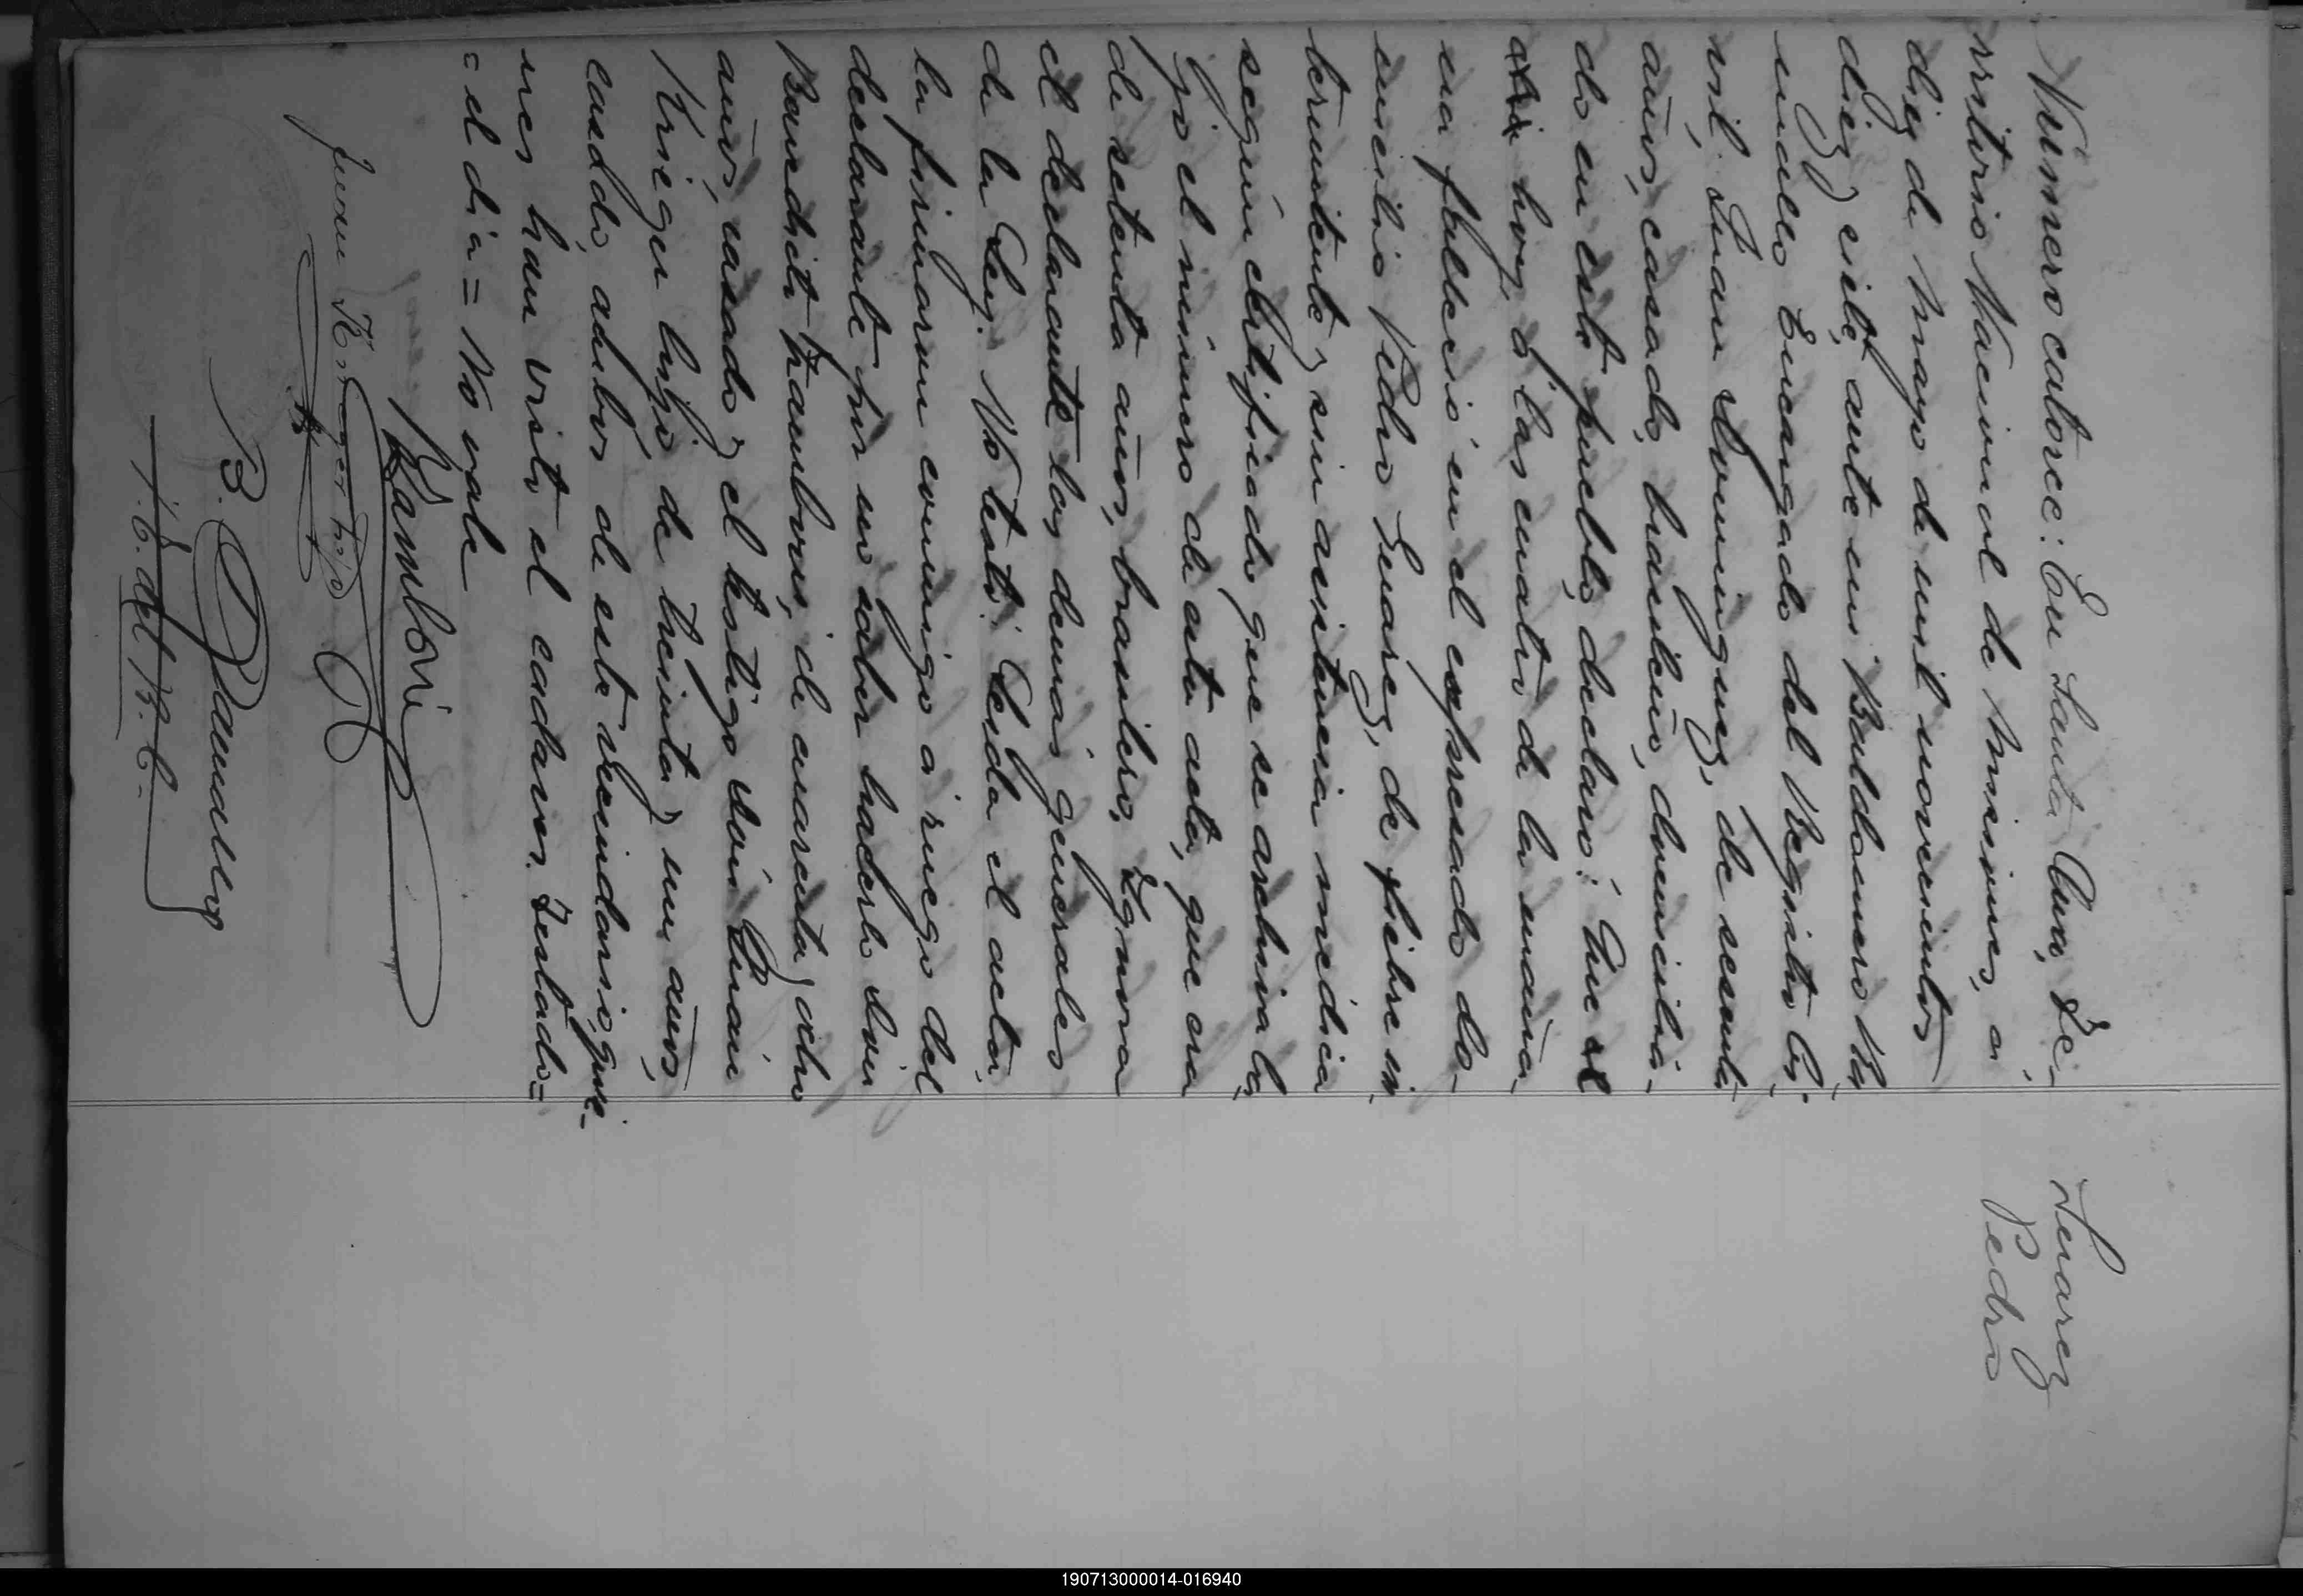 Suarez
Pedro
Número catorce: En Santa Ana, Te-
rritorio Nacional de Misiones, a
diez de Mayo de mil novecientos
diez y siete, ante mi Baldomero
Encargado del Registro Ci-
vil, Juan Dominguez, de sesenta
años, casado, brasileño, domicilia-
do en este pueblo, declaró: Que el
dia hoy, á las cuatro de la maña-
na falleció en el expresado do-
micilio Pedro Suarez, de fiebre in
termitente y sin asistencia médica
según certificado que se archiva ba
jo el número de esta acta, que era
de setenta años, brasilero, Ignora
el declarante las demás generales
de la Ley. No testó. Leida el acta,
la firmaron conmigo á ruego del
declarante por no saber hacerlo Don
Benedicto Zamboni, de cuarenta y ocho
años, casado y el testigo Don Juan
Krieger hijo de treinta y un años,
casado, ambos de este vecindario, quie-
nes han visto el cadaver. Testado=
= el dia = No vale
BZamboni
Juan Krieger hijo
B.
J. E. del R. C.
190713000014-016940